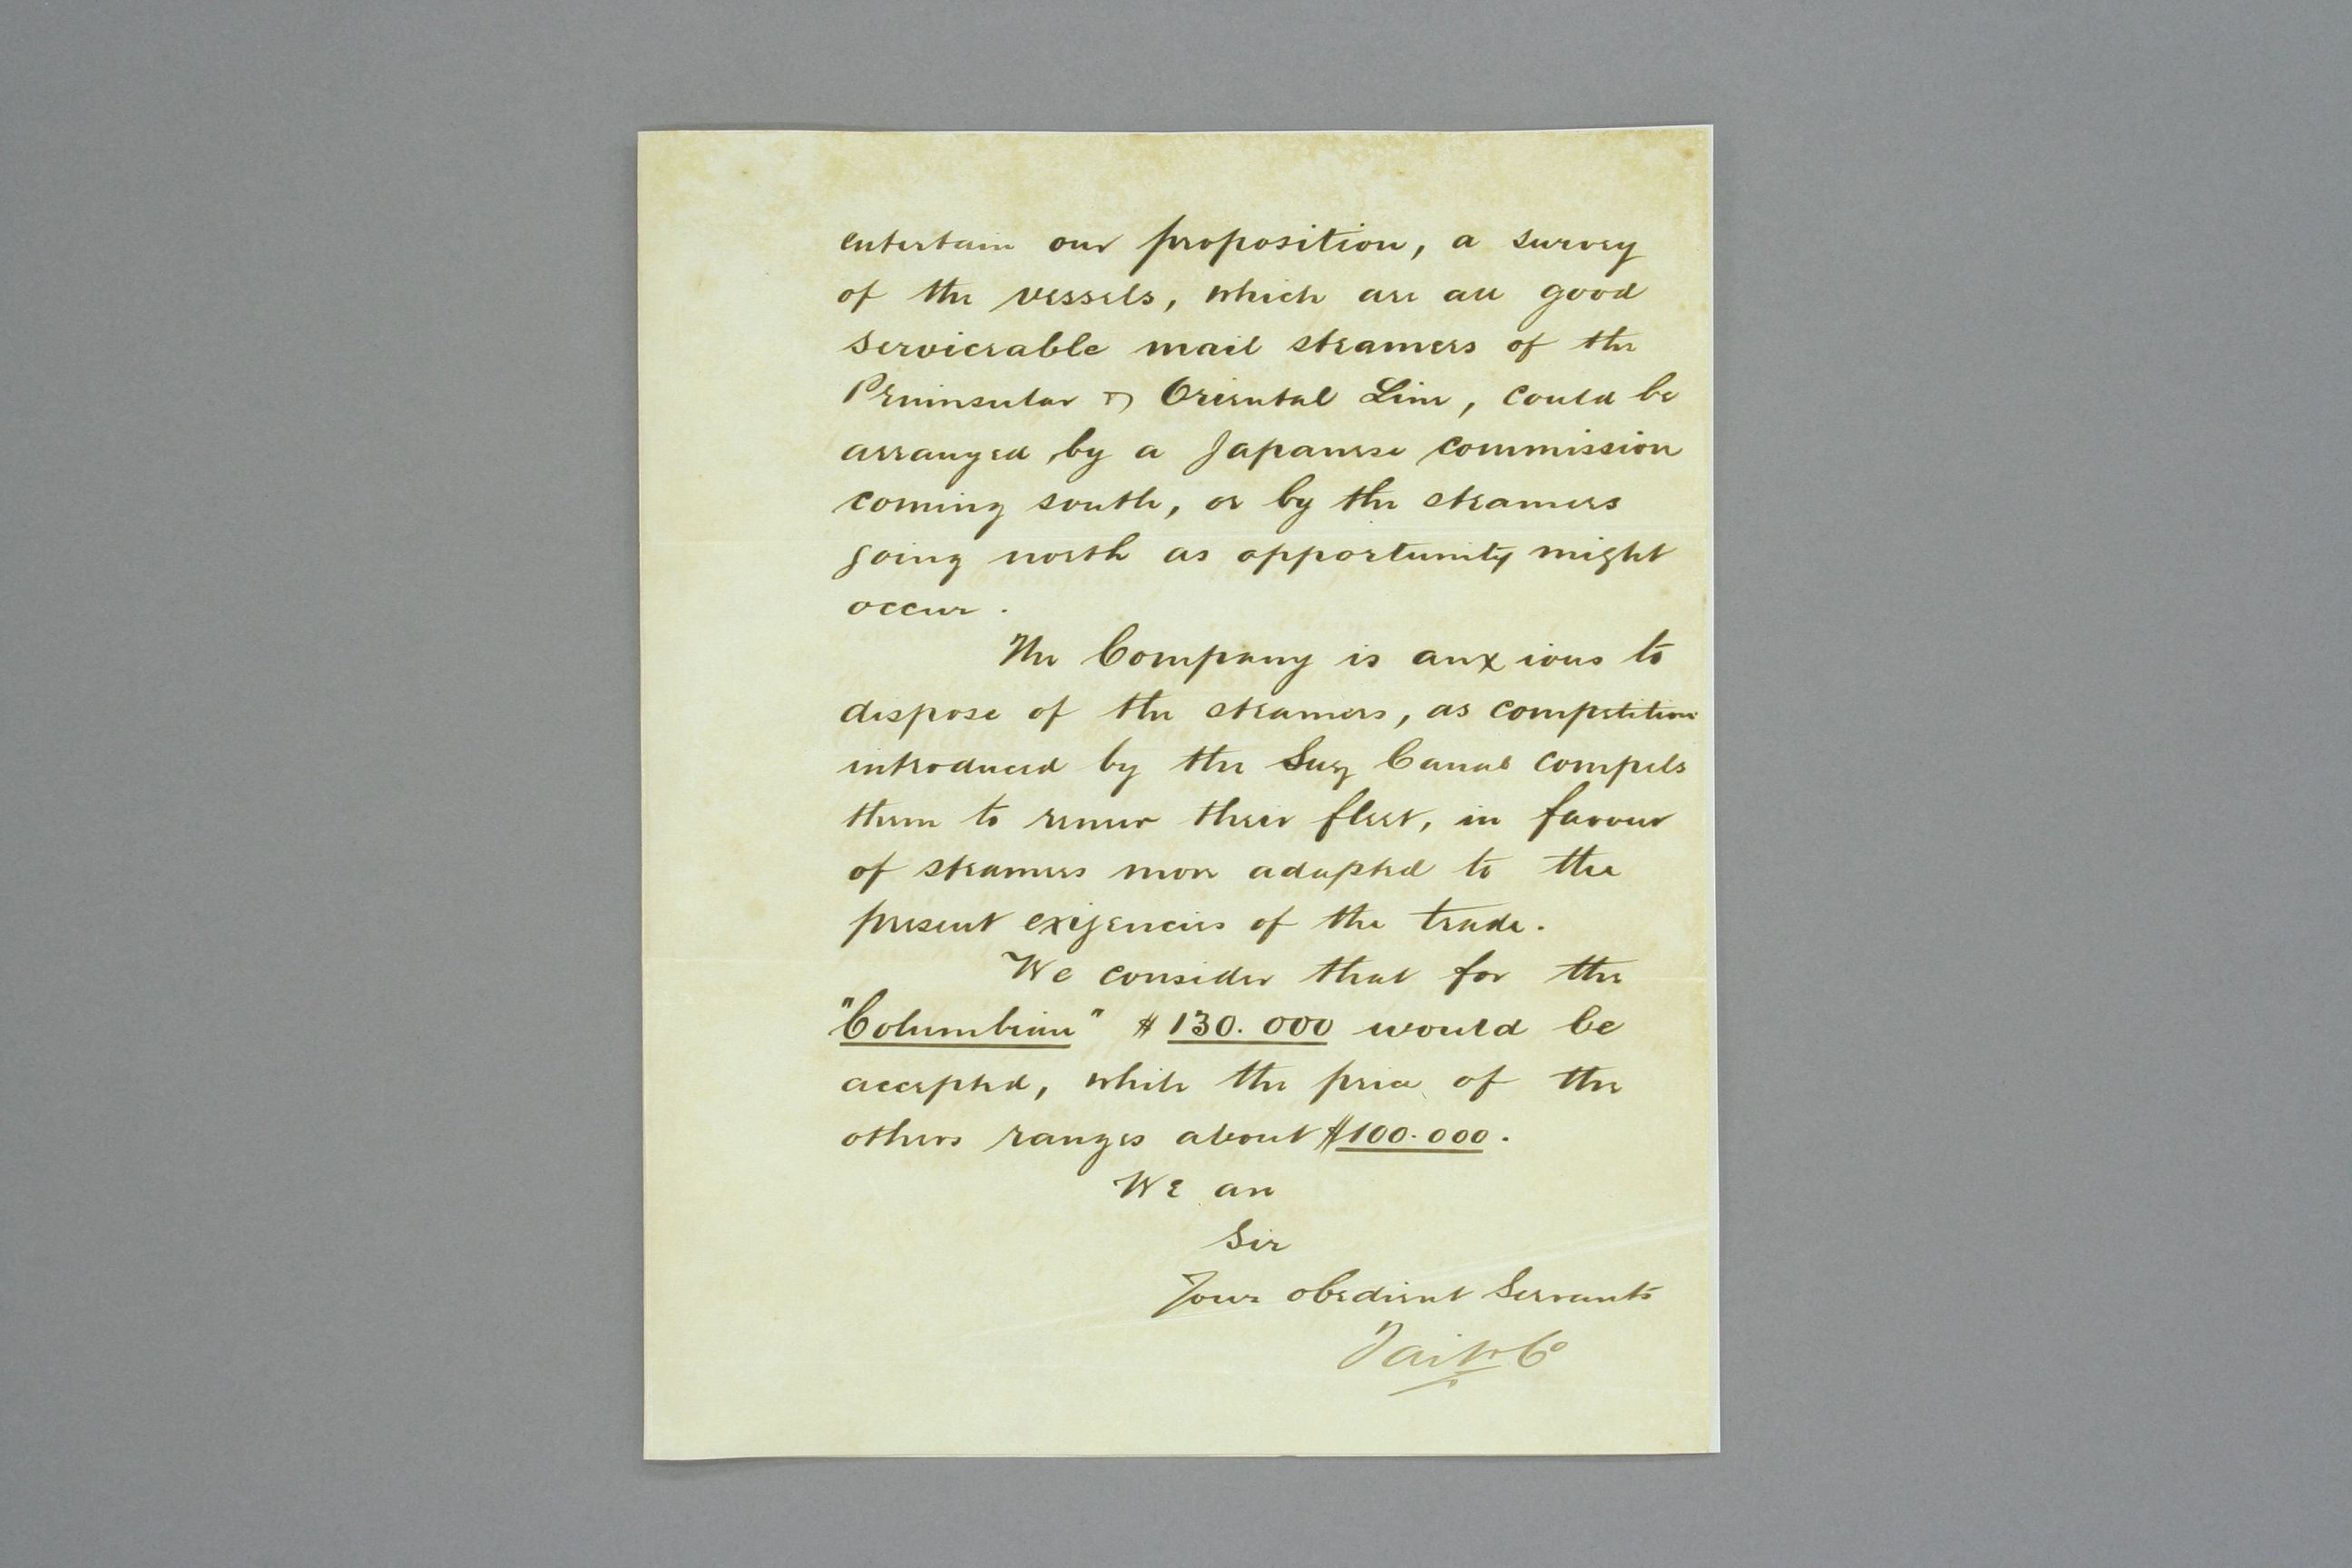 entertain our proposition, a survey
of the vessels, which are all good
serviceable mail steamers of the
Peninsular & Oriental Line, could be
arranged by a Japanese commission
coming south, or by the steamers
going north as opportunity might
occur.
The Company is anxious to
dispose of the steamers, as competition
introduced by the Suez Canal compels
them to renew their fleet, in favour
of steamers more adapted to the
present exigencies of the trade.
We consider that for the
"Columbian" $130.000 would be
accepted, while the price of the
others ranges about $100.000.
We are
Sir
Your obedient Servants
Tait & Co